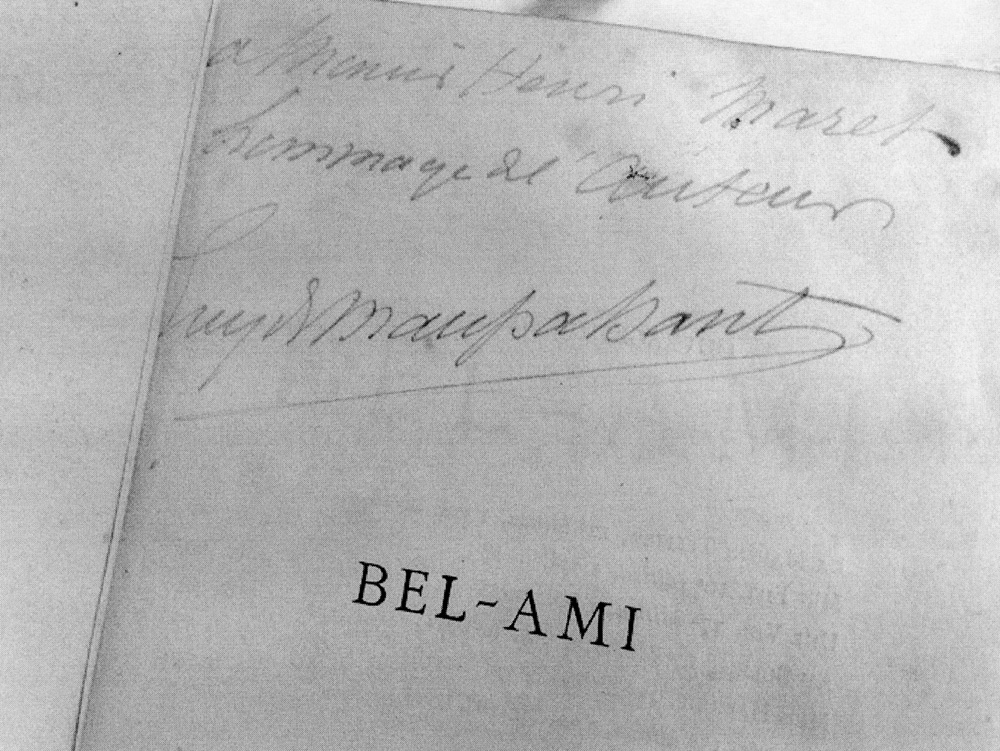 a Monsieur Henri Maret
hommage de l'auteur
Guy de Maupassant
BEL-AMI